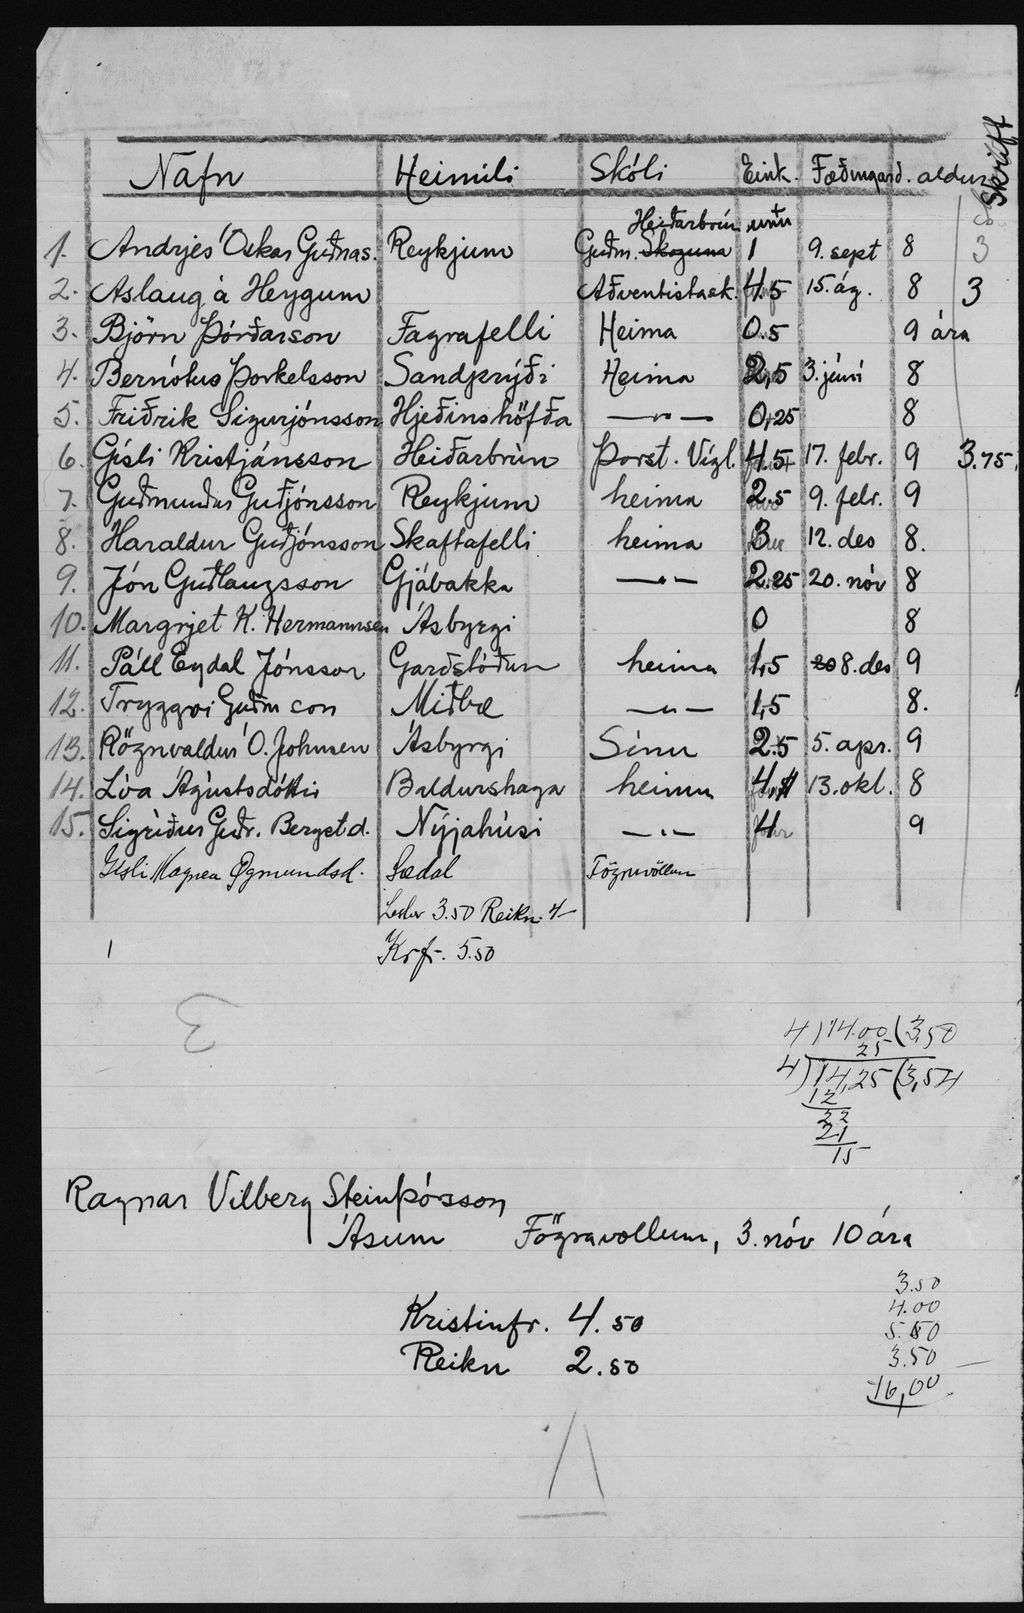 Nafn Heimili Skóli Eink. Fæðingard. aldur Skrift
Heiðarbrún
1. Andrjes Óskar Guðnas. Reykjum Guðm. 1 9. sept 8 3
2. Aslaug á Heygum Aðventistask. 4.5 15. ág. 8 3
3. Björn Þórðarson Fagrafelli Heima 0.5 9 ára
4. Bernótus Þorkelsson Sandprýði Heima 2,5 3. júní 8
5. Friðrik Sigurjónsson Hjeðinshöfða —„— 0,25 8
6. Gísli Kristjánsson Heiðarbrún Þorst. Vígl. 4.5 17. febr. 9 3.75
7. Guðmundur Guðjónsson Reykjum heima 2.5 9. febr. 9
8. Haraldur Guðjónsson Skaftafelli heima 3 12. des 8.
9. Jón Guðlaugsson Gjábakka —„— 2.25 20. nóv 8
10. Margrjet K. Hermannsen Ásbyrgi 0 8
11. Páll Eydal Jónsson Garðstöðum heima 1,5 8. des 9
12. Tryggvi Guðm son Miðbæ —„— 1,5 8.
13. Rögnvaldur Ó. Johnsen Ásbyrgi Sínu 2.5 5. apr. 9
14. Lóa Ágústsdóttir Baldurshaga heima 4, 13. okt. 8
15. Sigríður Guðr. Bergst d. Nýjahúsi —„— 4 9
Gísli Magnea Øgmundsd. Sædal Fögruvöllum
3.50 Reikn. 4—
Kr.fr. 5.50
3
4)14.00(3,50
25
4)14,25(3,54
12
22
21
15
Ragnar Vilberg Steinþórsson
Ásum Fögruvollum, 3. nóv 10 ára
3.50
Kristinfr. 4.50 4.00
5.50
Reikn 2.50 3.50
16,00